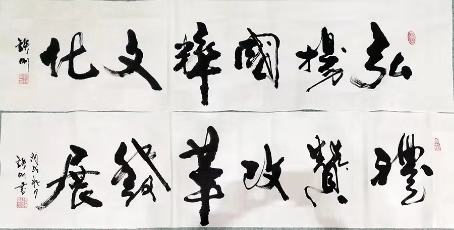 弘揚國粹文化
禮贊改革發展